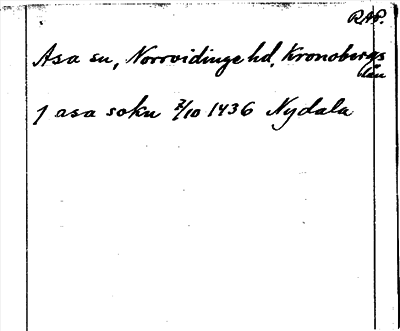 RAP.
Asa sn, Norrvidinge hd, Kronobergs
län
J asa sokn 2/10 1436 Nydala